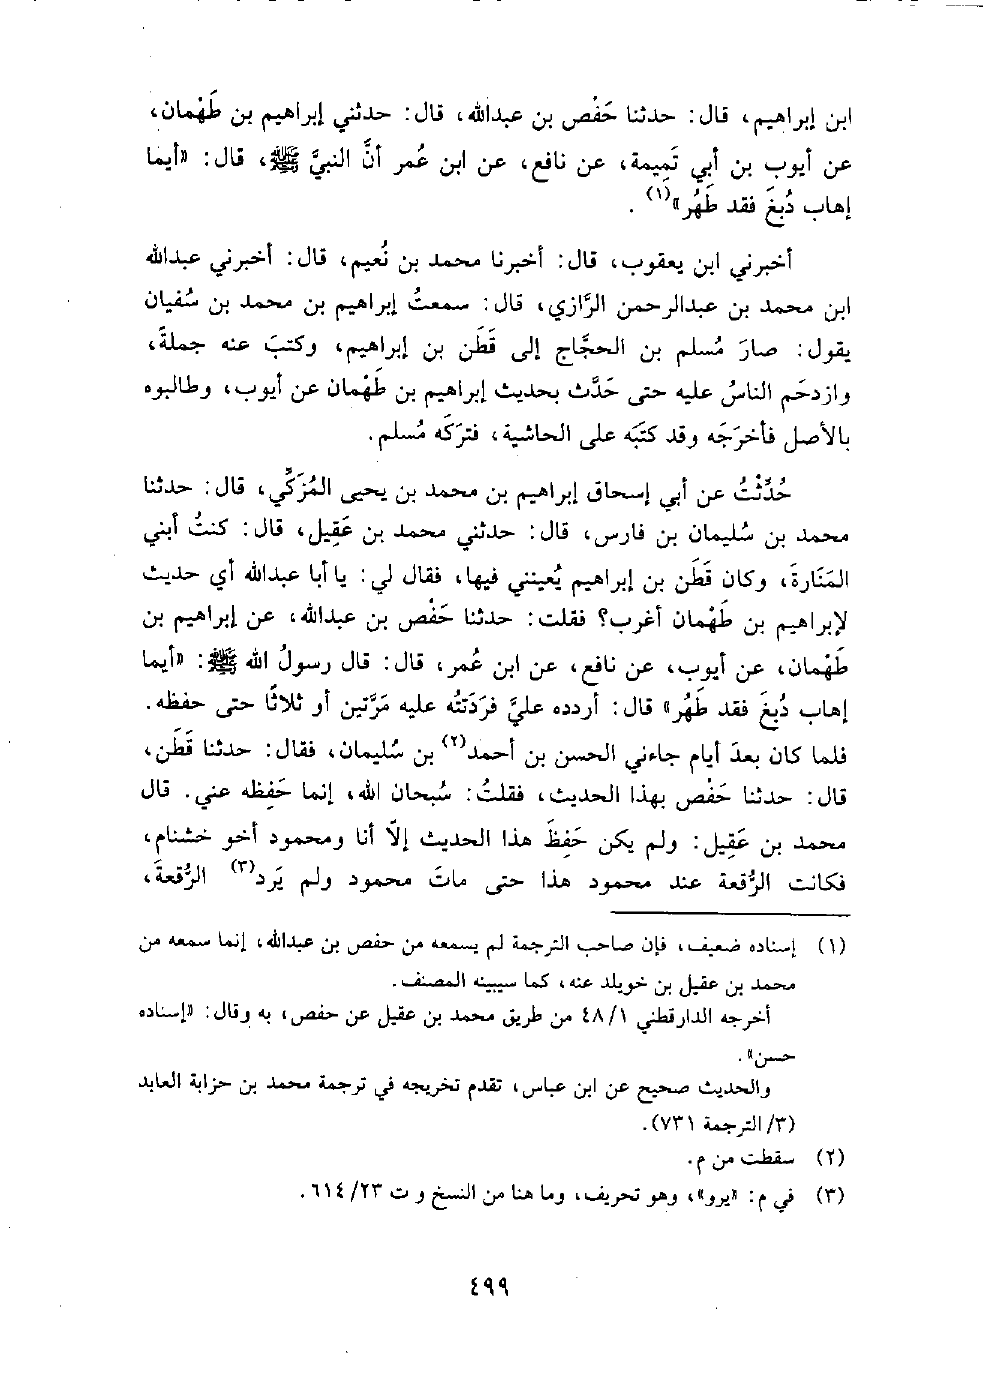 ابن إبراهيم، قال: حدثنا حَفْص بن عبدالله، قال: حدثني إبراهيم بن طَهْمان،
عن أيوب بن أبي تَمِيمة، عن نافع، عن ابن عُمر أنَّ النبيَّ ﷺ، قال: «أيما
إهاب دُبِغَ فقد طَهُر»(١) .
أخبرني ابن يعقوب، قال: أخبرنا محمد بن نُعيم، قال: أخبرني عبدالله
ابن محمد بن عبدالرحمن الرَّازي، قال: سمعتُ إبراهيم بن محمد بن سُفيان
يقول: صارَ مُسلم بن الحجَّاج إلى قَطَن بن إبراهيم، وكتبَ عنه جملةً،
وازدحَم الناسُ عليه حتى حَدَّث بحديث إبراهيم بن طَهْمان عن أيوب، وطالبوه
بالأصل فأخرَجَه وقد كتبَه على الحاشية، فتركَه مُسلم.
حُدِّثْتُ عن أبي إسحاق إبراهيم بن محمد بن يحيى المُزَكِّي، قال: حدثنا
محمد بن سُليمان بن فارس، قال: حدثني محمد بن عَقِيل، قال: كنتُ أبني
المَنَارةَ، وكان قَطَن بن إبراهيم يُعينني فيها، فقال لي: يا أبا عبدالله أي حديث
لإبراهيم بن طَهْمان أغرب؟ فقلت: حدثنا حَفْص بن عبدالله، عن إبراهيم بن
طَهْمان، عن أيوب، عن نافع، عن ابن عُمر، قال: قال رسولُ الله ﷺ: «أيما
إهاب دُبِغَ فقد طَهُر» قال: أردده عليَّ فرَدَدْتُه عليه مَرَّتين أو ثلاثًا حتى حفظه.
فلما كان بعدَ أيام جاءني الحسن بن أحمد(٢) بن سُليمان، فقال: حدثنا قَطَن،
قال: حدثنا حَفْص بهذا الحديث، فقلتُ: سُبحان الله، إنما حَفِظه عني. قال
محمد بن عَقِيل: ولم يكن حَفِظَ هذا الحديث إلّا أنا ومحمود أخو خشنام،
فكانت الرُّقعة عند محمود هذا حتى ماتَ محمود ولم يَرد(٣) الرُّقعةَ،
(١) إسناده ضعيف، فإن صاحب الترجمة لم يسمعه من حفص بن عبدالله، إنما سمعه من
محمد بن عقيل بن خويلد عنه، كما سيبينه المصنف.
أخرجه الدارقطني ٤٨/١ من طريق محمد بن عقيل عن حفص، به وقال: «إسناده
حسن».
والحديث صحيح عن ابن عباس، تقدم تخريجه في ترجمة محمد بن حزابة العابد
(٣/ الترجمة ٧٣١).
(٢) سقطت من م.
(٣) في م: «يرو»، وهو تحريف، وما هنا من النسخ و ت ٦١٤/٢٣.
٤٩٩